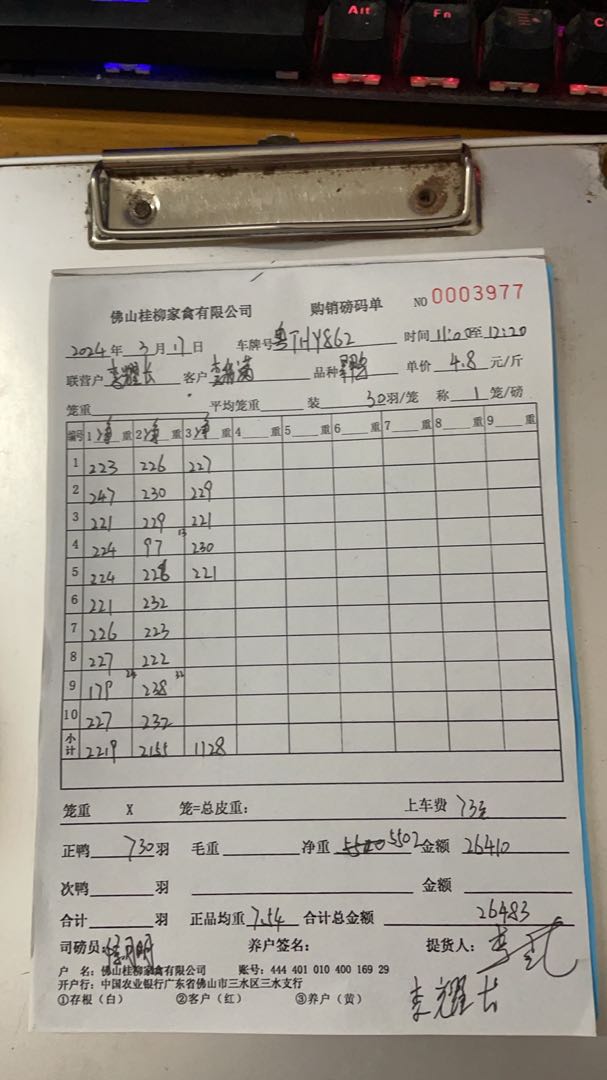 Alt Fn
佛山桂柳家禽有限公司 购销磅码单 NO 0003977
2024年 3月17日 车牌号 粤THY862 时间 11:00至12:20
联营户 李耀长 客户 品种 单价 4.8 元/斤
笼重 平均笼重 装 30羽/笼 称 1 笼/磅
编号 1 净 重 2 净 重 3 净 重 4 重 5 重 6 重 7 重 8 重 9 重
1 223 226 227
2 247 230 229
3 221 229 221
4 224 97 13 230
5 224 226 221
6 221 232
7 226 223
8 227 222
9 179 24 238 32
10 227 232
小计 2219 2155 1128
笼重 X 笼=总皮重: 上车费 73元
正鸭 730羽 毛重 净重 5502 金额 26410
次鸭 羽 金额
合计 羽 正品均重 7.54 合计总金额 26483
司磅员: 养户签名: 提货人:
户 名: 佛山桂柳家禽有限公司 账号: 444 401 010 400 169 29
开户行: 中国农业银行广东省佛山市三水区三水支行
李耀长
①存根（白） ②客户（红） ③养户（黄）